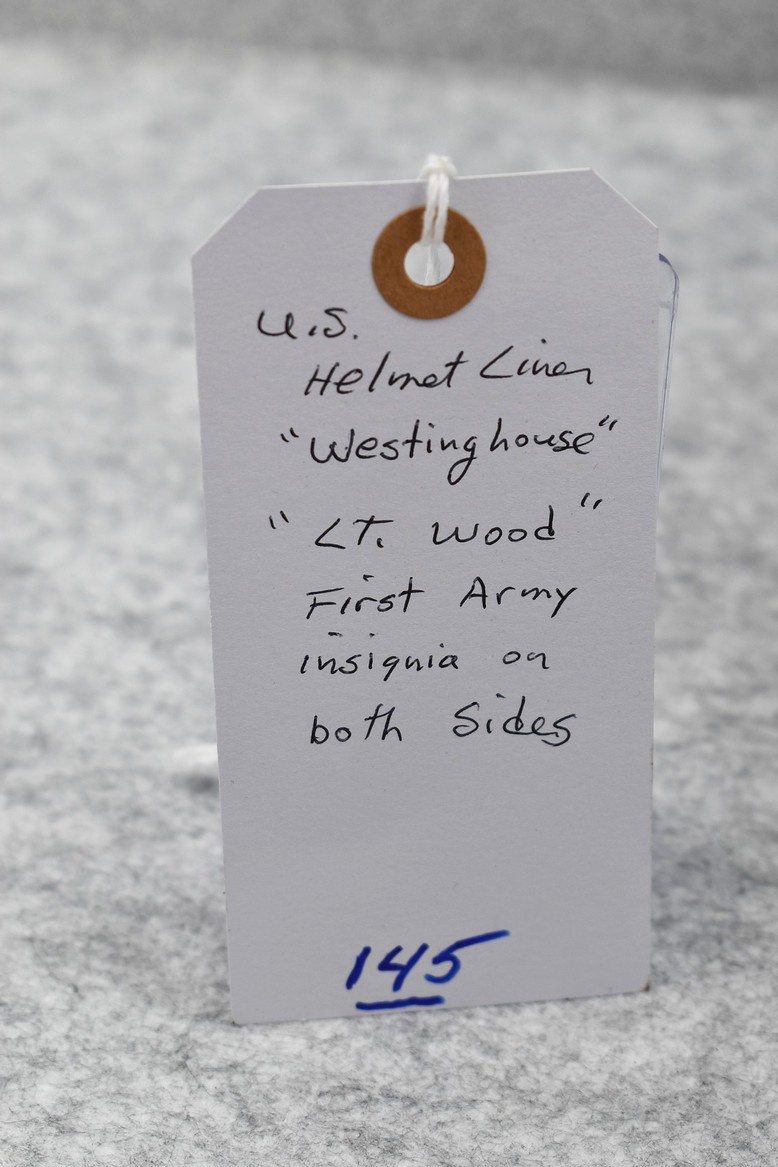 U.S.
Helmet Liner
"Westinghouse"
"Lt. Wood"
First Army
insignia on
both Sides
145